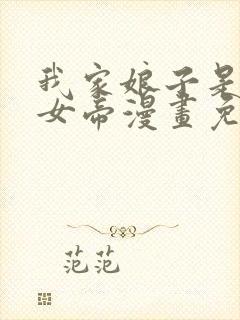 我家娘子是
女帝漫畫免
范范